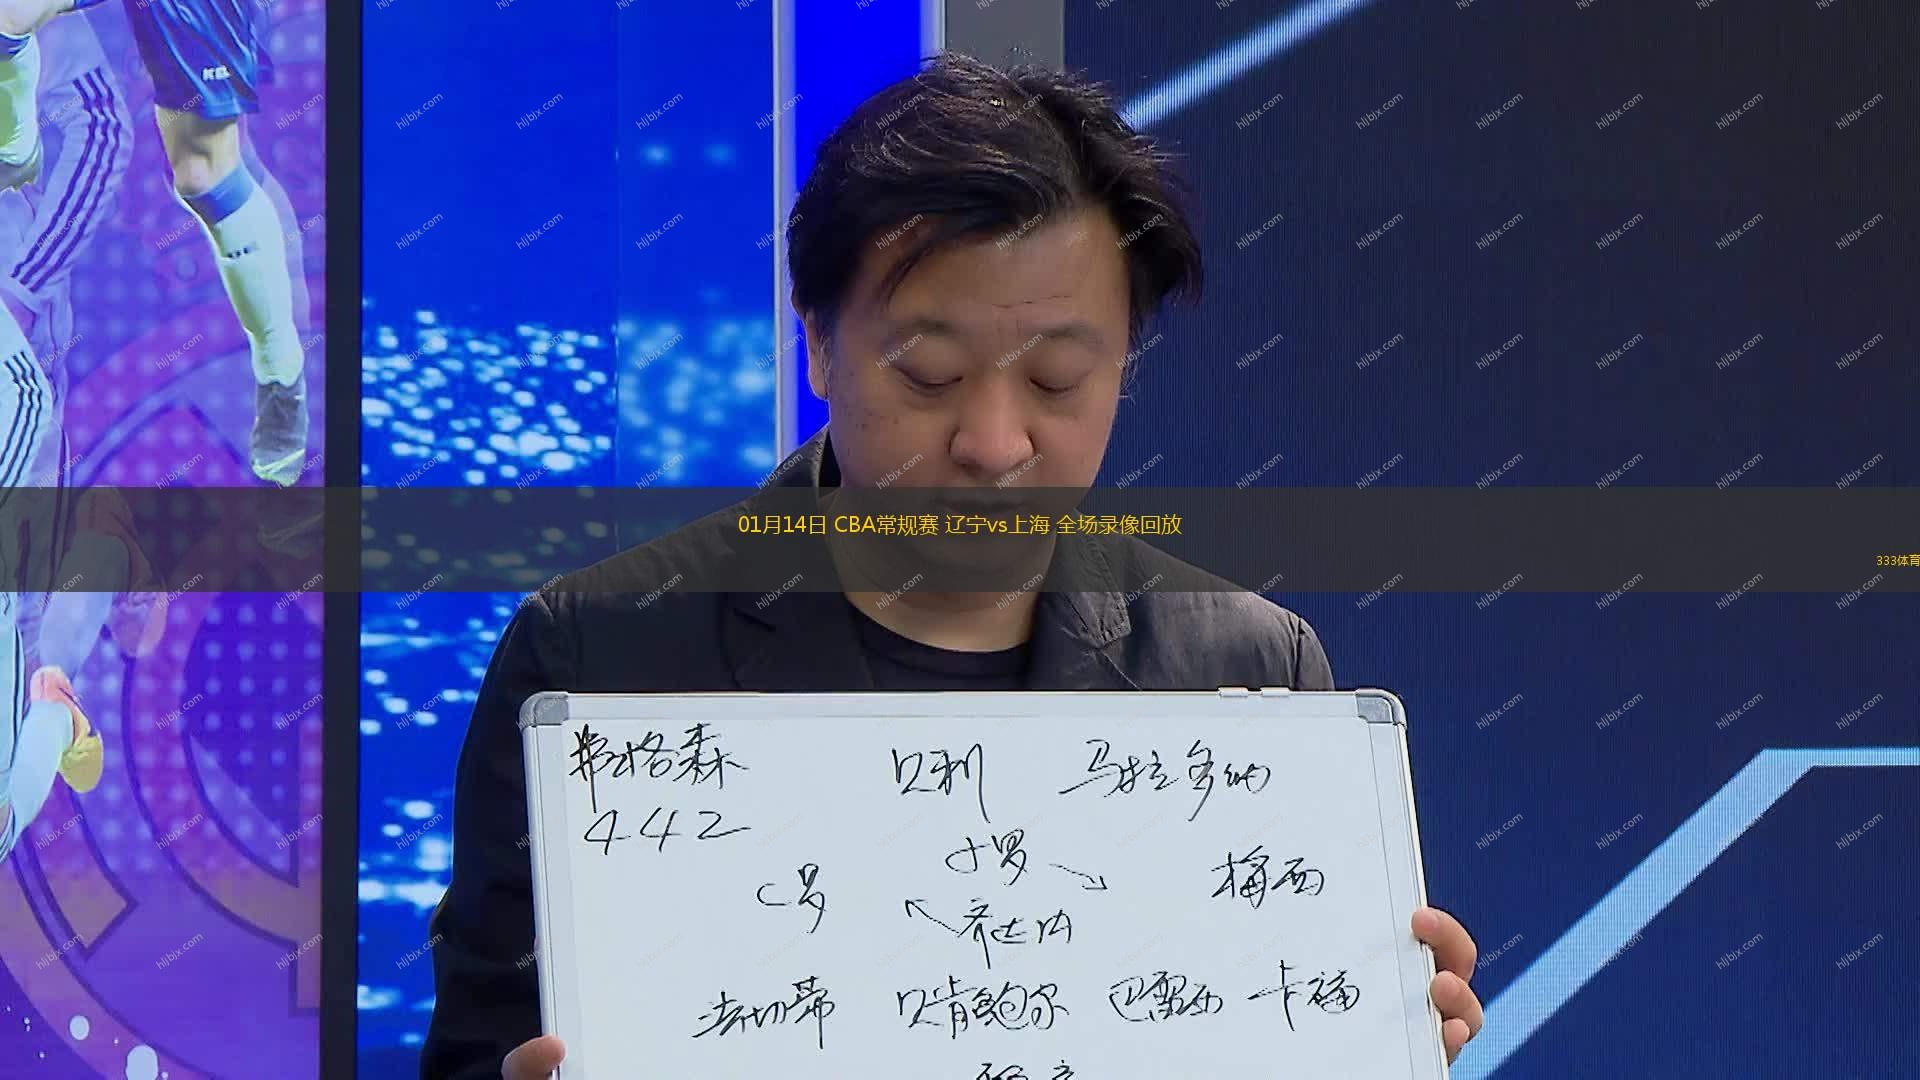 01月14日 CBA常规赛 辽宁vs上海 全场录像回放
333体育
hljbjx.com
KEL
弗格森 贝利 马拉多纳
442
C罗 大罗 梅西
齐达内
法切蒂 贝肯鲍尔 巴雷西 卡福